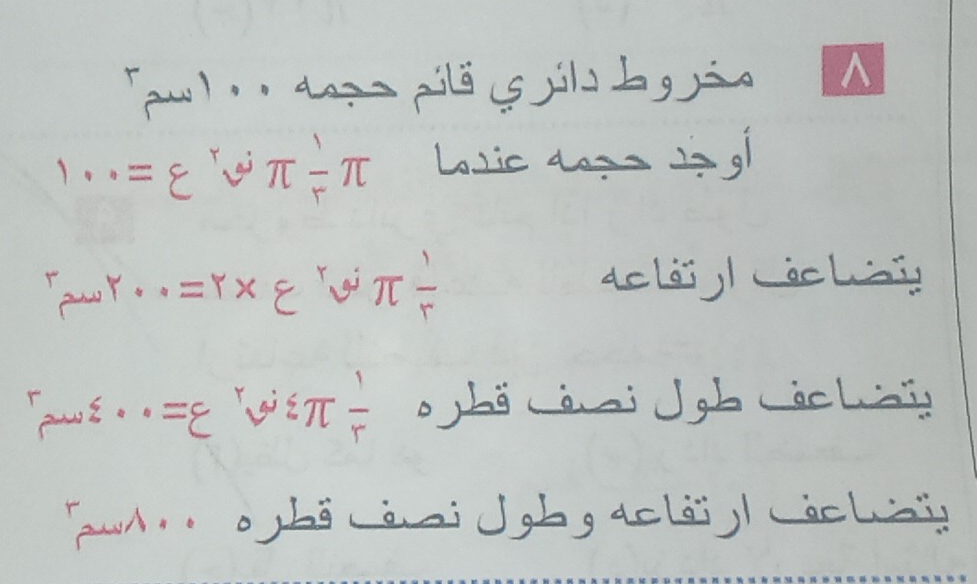 ٨ مخروط دائري قائم حجمه ١٠٠سم٣
أوجد حجمه عندما π ١/٣ π نق٢ ع = ١٠٠
يتضاعف ارتفاعه ١/٣ π نق٢ ع × ٢ = ٢٠٠سم٣
يتضاعف طول نصف قطره ١/٣ π ٤ نق٢ ع = ٤٠٠سم٣
يتضاعف ارتفاعه وطول نصف قطره ٨٠٠سم٣